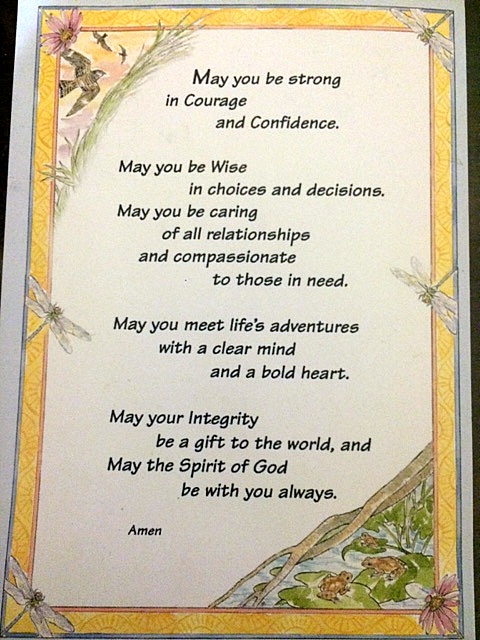 May you be strong
in Courage
and Confidence.
May you be Wise
in choices and decisions.
May you be caring
of all relationships
and compassionate
to those in need.
May you meet life's adventures
with a clear mind
and a bold heart.
May your Integrity
be a gift to the world, and
May the Spirit of God
be with you always.
Amen